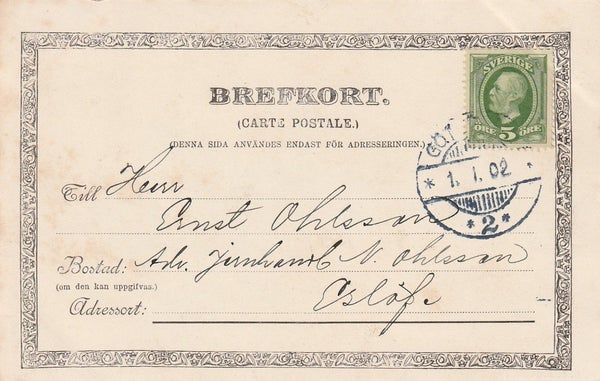 BREFKORT.
(CARTE POSTALE.)
(DENNA SIDA ANVÄNDES ENDAST FÖR ADRESSERINGEN.)
SVERIGE
ÖRE 5 ÖRE
GÖT
* 1. 1. 02 *
* 2 *
Till Herr
Ernst Ohlsson
Bostad: Adr. Jernhandl N. Ohlsson
(om den kan uppgifvas.)
Eslöf
Adressort: